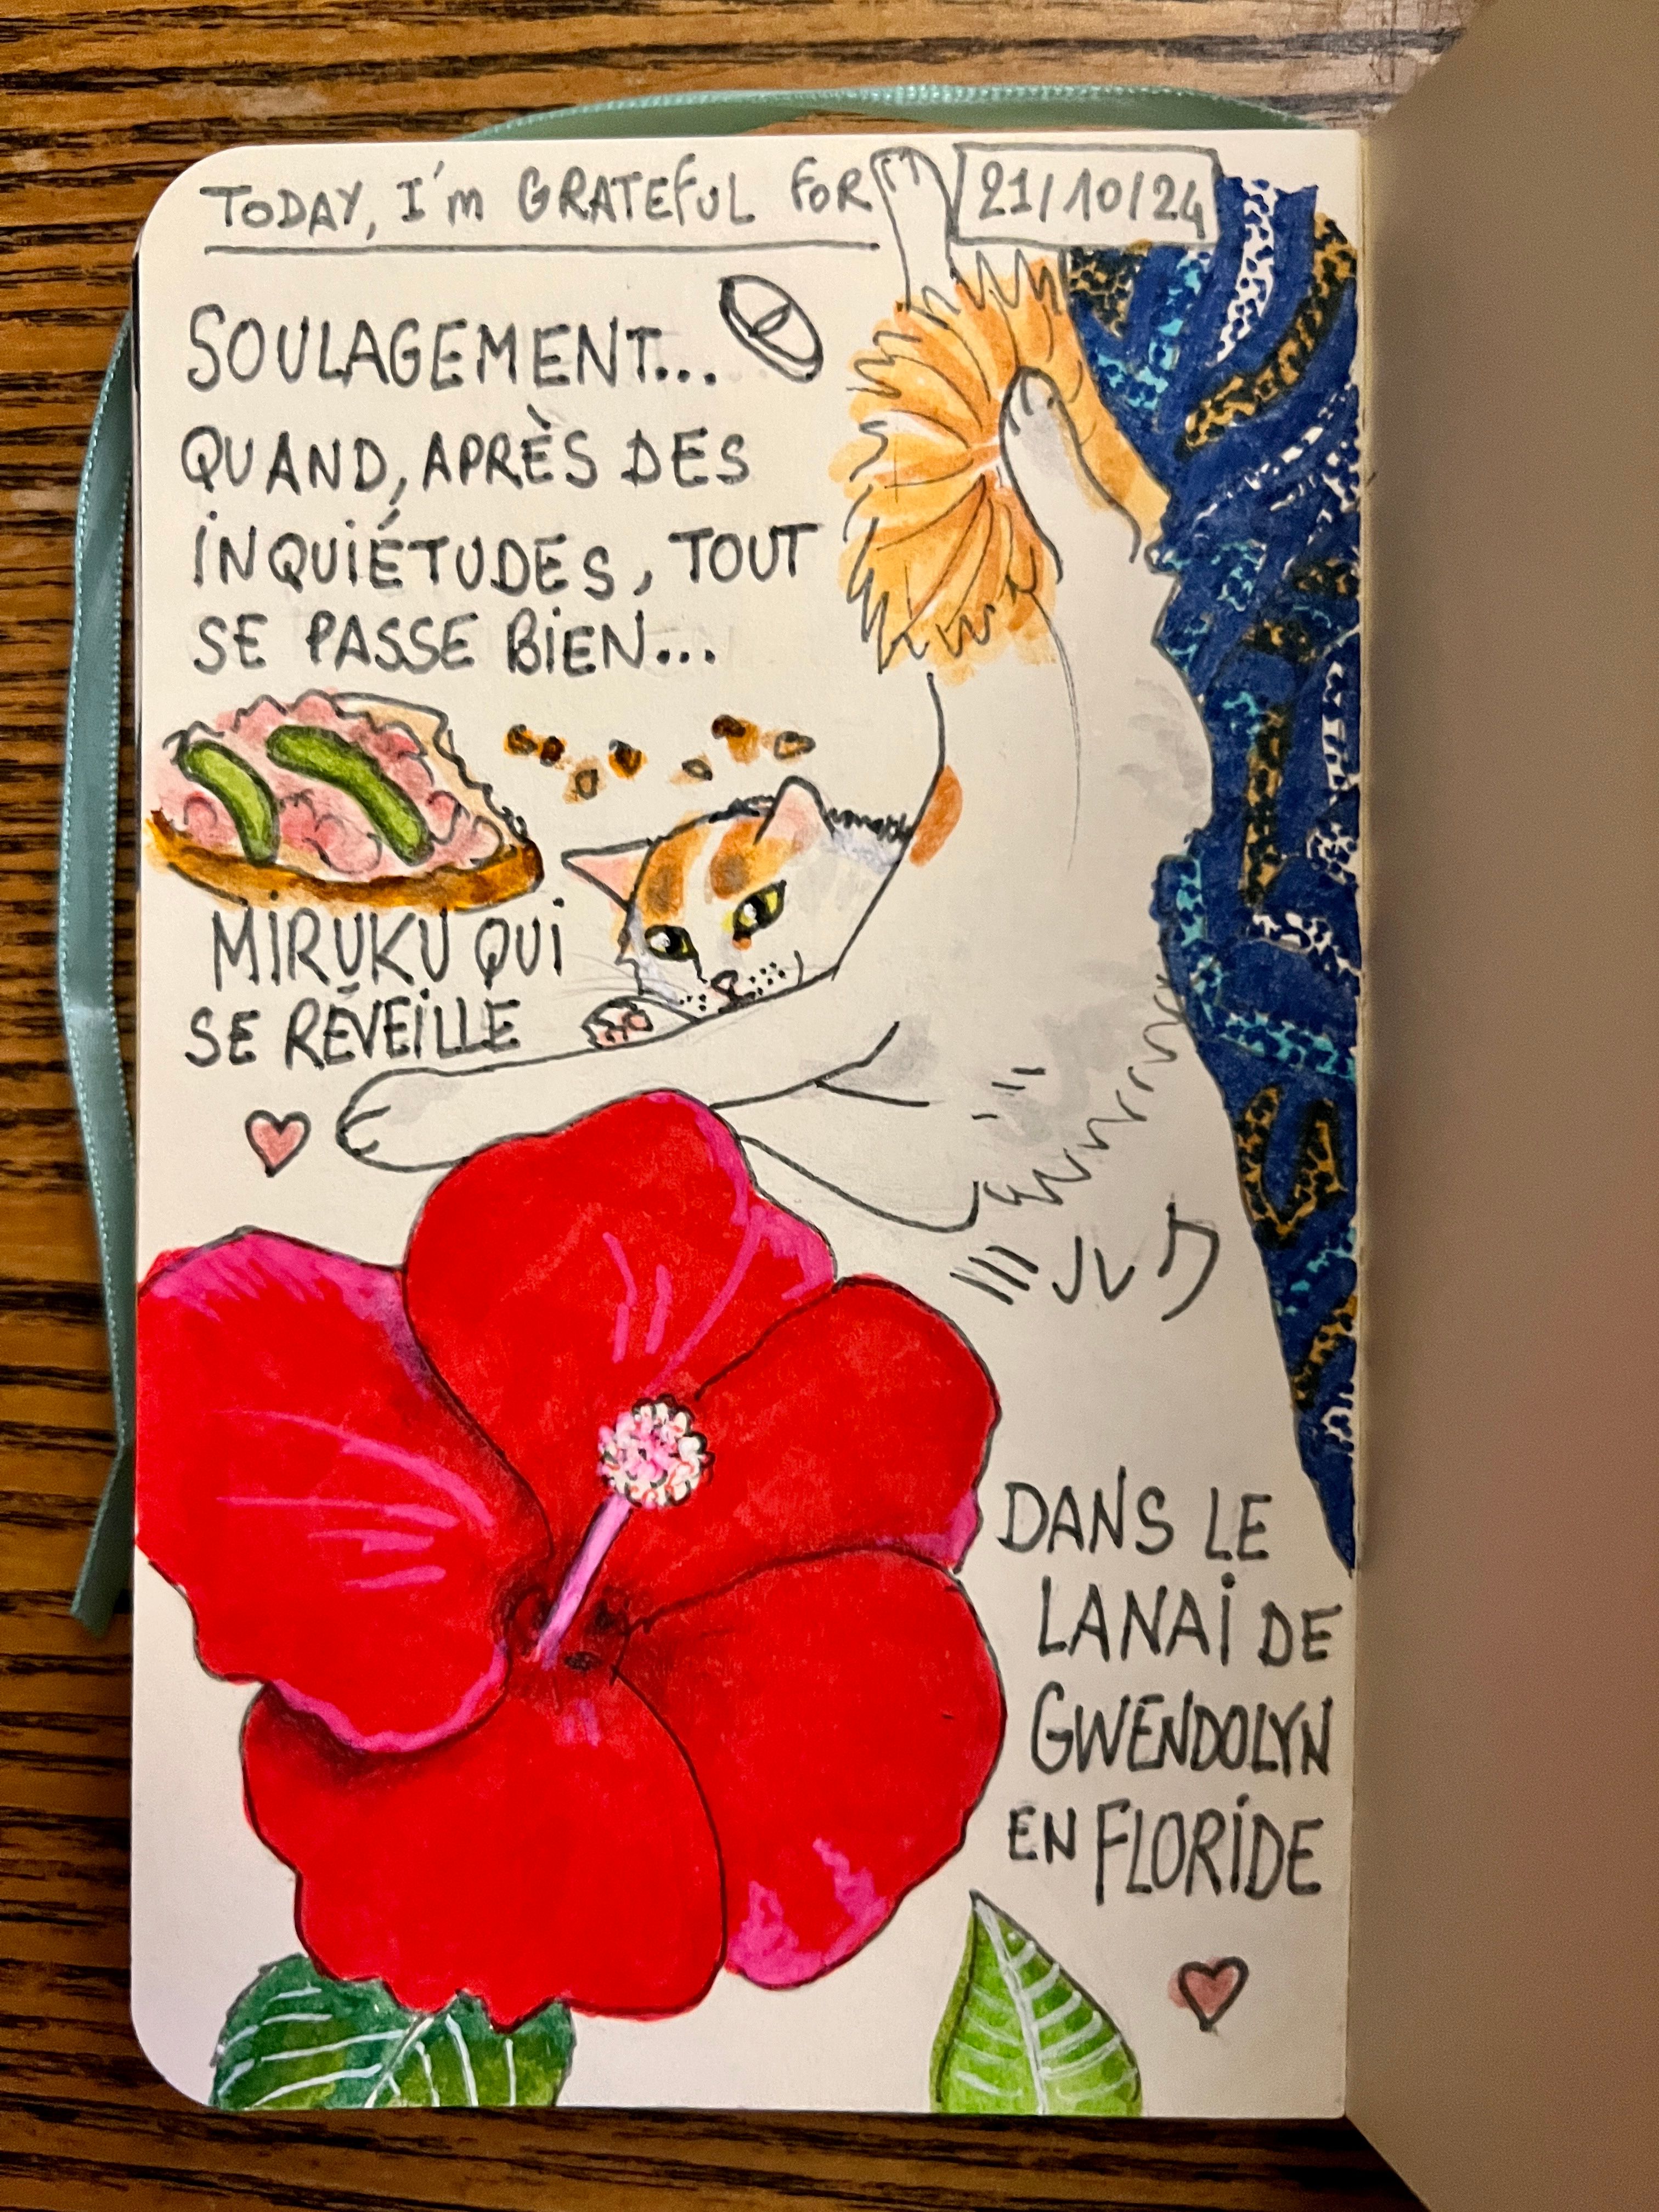 TODAY, I'm GRATEFUL FOR
21/10/24
SOULAGEMENT...
QUAND, APRÈS DES
INQUIÉTUDES, TOUT
SE PASSE BIEN...
MIRUKU QUI
SE RÉVEILLE
DANS LE
LANAI DE
GWENDOLYN
EN FLORIDE